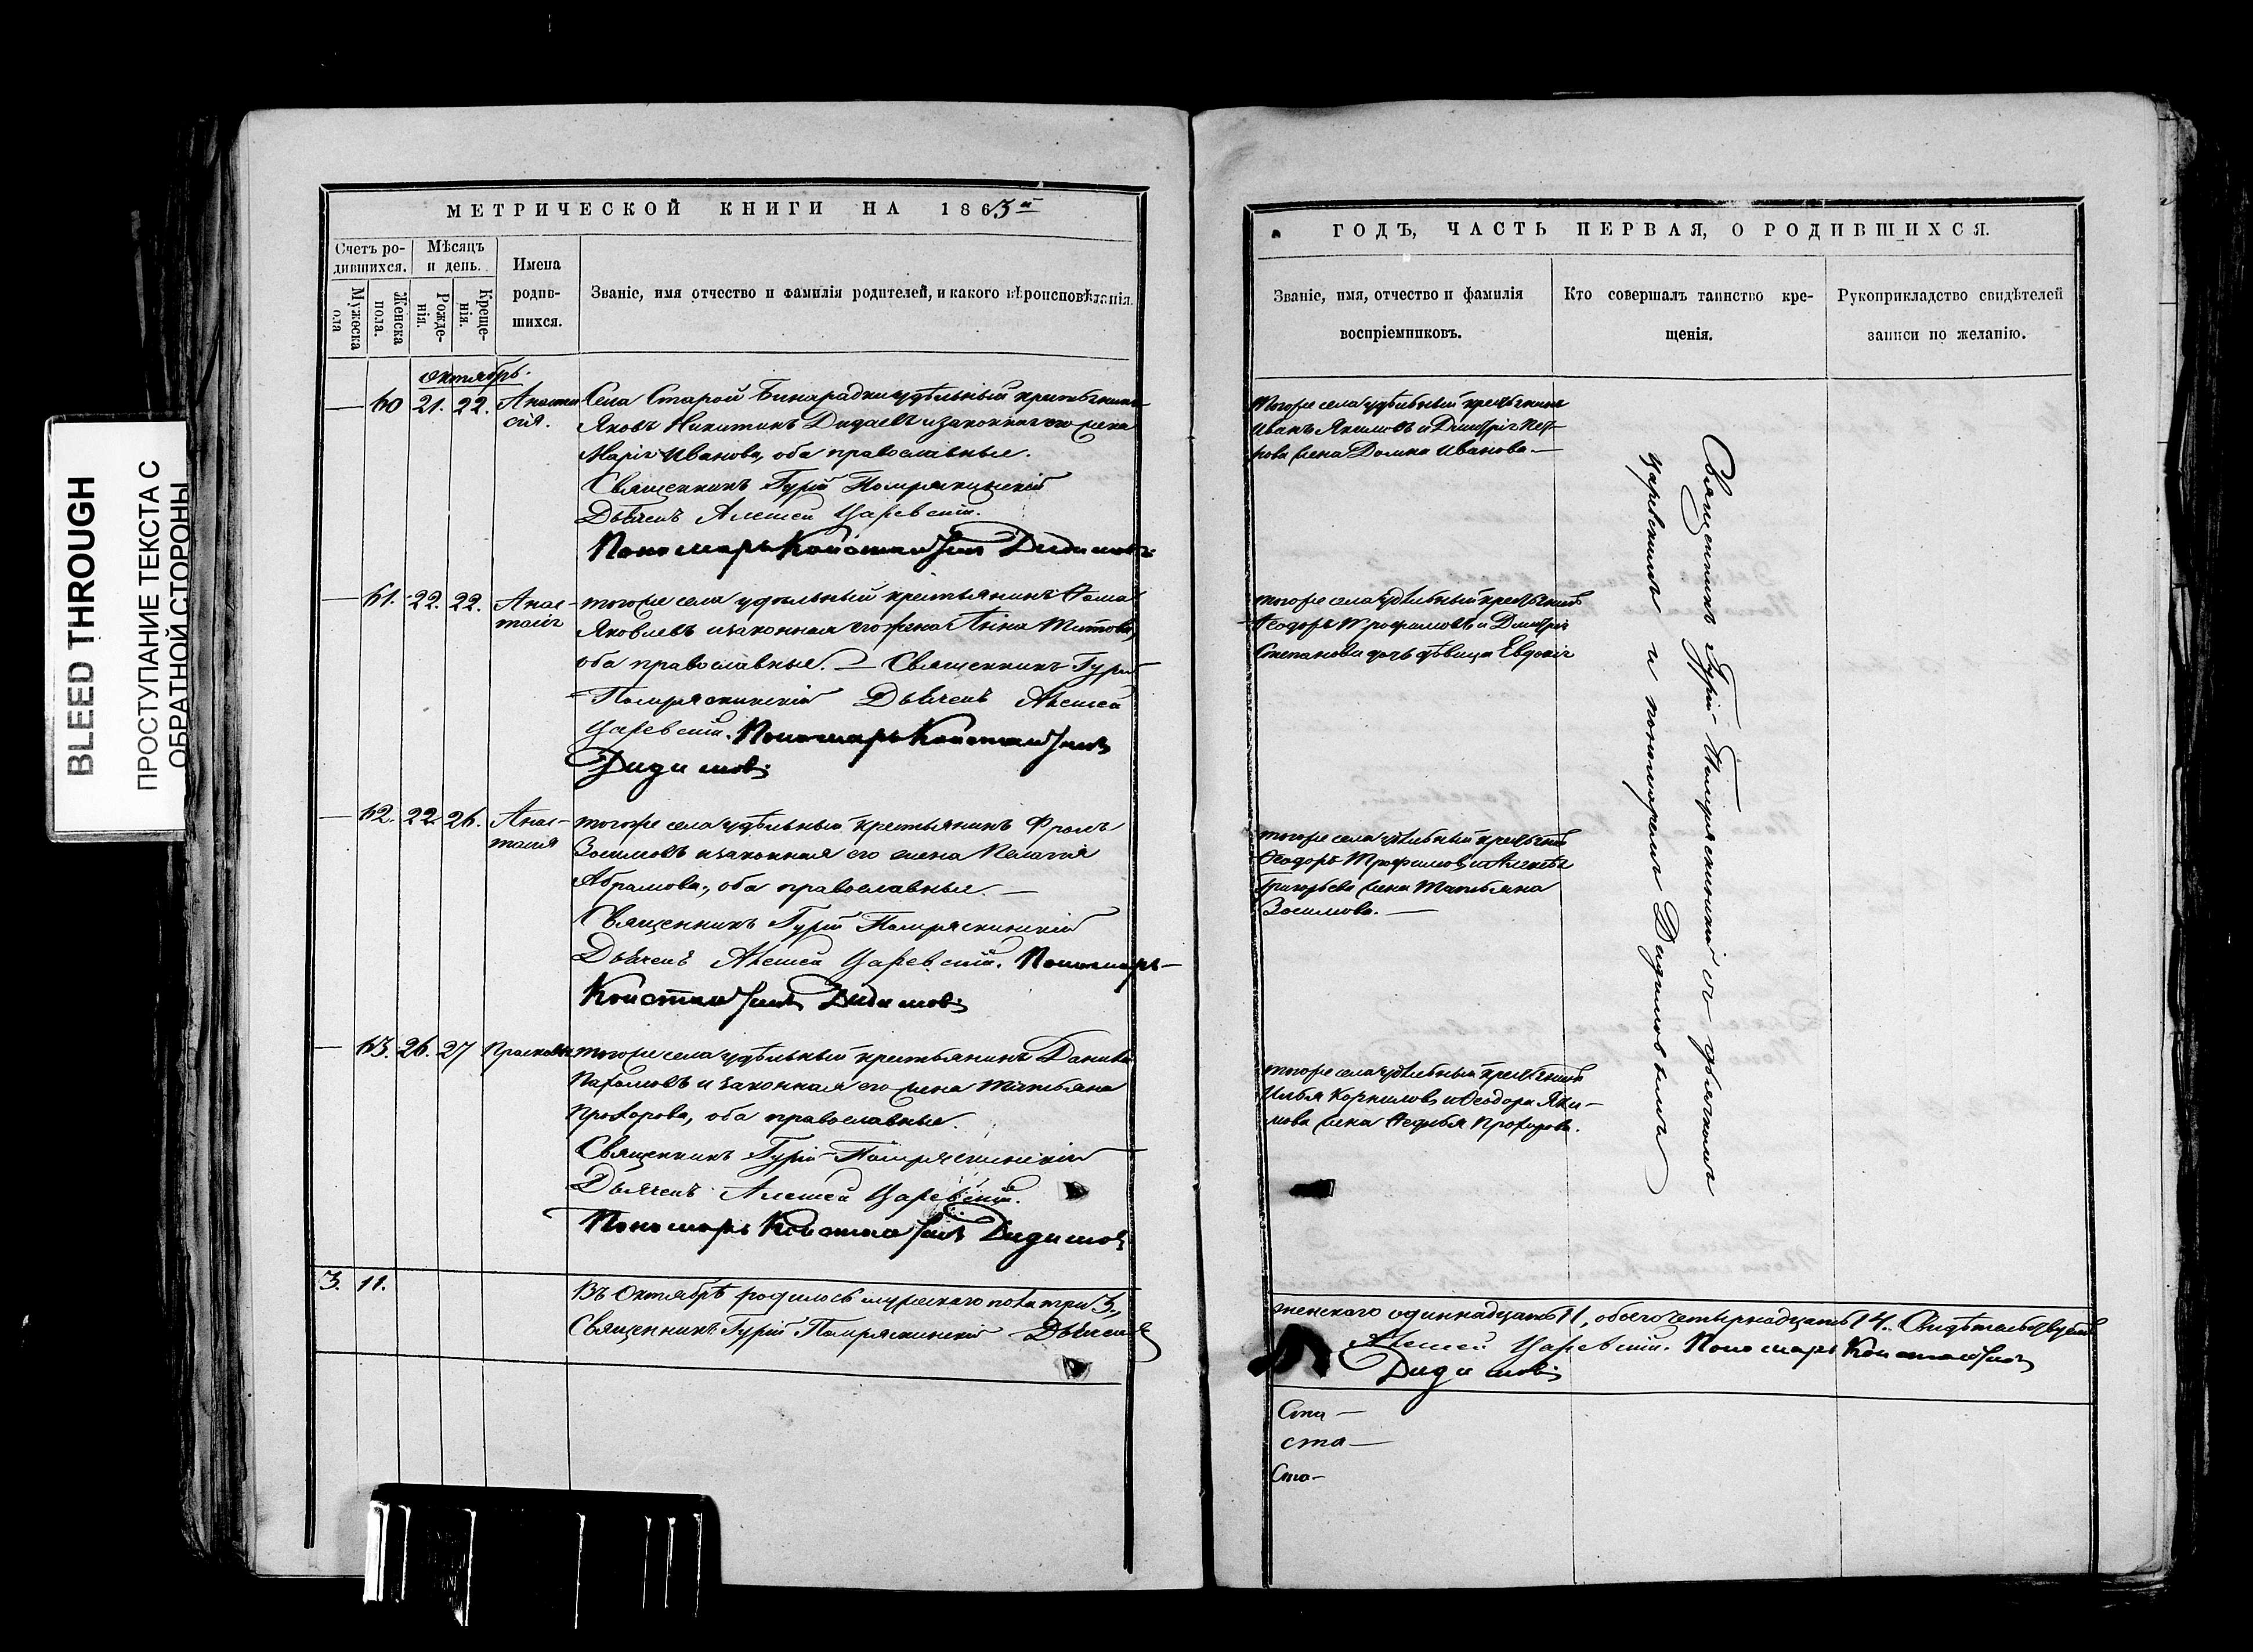 BLEED THROUGH
ПРОСТУПАНИЕ ТЕКСТА С
ОБРАТНОЙ СТОРОНЫ
МЕТРИЧЕСКОЙ КНИГИ НА 1863й
Счетъ ро-
дившихся.
Мѣсяцъ
и день.
Имена
родив-
шихся.
Званіе, имя отчество и фамилія родителей, и какого вѣроисповѣданія.
Мужеска
Женска
пола.
Рожде-
нія.
Креще-
нія.
Октябрь.
60 21. 22. Анаста-
сія.
Села Старой Бинарадки удѣльный крестьянинъ
Яковъ Никитинъ Дидаевъ и законная его жена
Марія Иванова, оба православные.
Священникъ Гурій Помряскинскій
Дьячекъ Алексей Царевскій.
Пономарь Константинъ Дидимовъ
61. 22. 22. Анас-
тасія
тогоже села удѣльный крестьянинъ Фома
Яковлевъ и законная его жена Анна Титова,
оба православные. — Священникъ Гурій
Помряскинскій Дьячекъ Алексей
Царевскій. Пономарь Константинъ
Дидимовъ
62. 22. 26. Анас-
тасія
тогоже села удѣльный крестьянинъ Фролъ
Зосимовъ и законная его жена Пелагія
Абрамова, оба православные. —
Священникъ Гурій Помряскинскій
Дьячекъ Алексей Царевскій. Пономарь
Константинъ Дидимовъ
63. 26. 27 Прасковья
тогоже села удѣльный крестьянинъ Данила
Пахомовъ и законная его жена Татьяна
Прохорова, оба православные.
Священникъ Гурій Помряскинскій
Дьячекъ Алексей Царевскій.
Пономарь Константинъ Дидимовъ
3. 11.
Въ Октябрѣ родилось мужескаго пола три 3,
Священникъ Гурій Помряскинскій Дьячекъ
ГОДЪ, ЧАСТЬ ПЕРВАЯ, О РОДИВШИХСЯ.
Званіе, имя, отчество и фамилія
воспріемниковъ.
Кто совершалъ таинство кре-
щенія.
Рукоприкладство свидѣтелей
записи по желанію.
тогоже села удѣльный крестьянинъ
Иванъ Якимовъ и Димитрія Пет-
рова жена Домна Иванова. —
тогоже села удѣльный крестьянинъ
Феодоръ Трофимовъ и Димитрія
Степанова дочь дѣвица Евдокія
тогоже села удѣльный крестьянинъ
Феодоръ Трофимовъ и Алексѣя
Григорьева жена Татьяна
Зосимова. —
тогоже села удѣльный крестьянинъ
Илья Корниловъ и Феодора Яки-
мова жена Прохорова.
Священникъ Гурій Помряскинскій съ дьячкомъ
Царевскимъ и пономаремъ Дидимовымъ
женскаго одиннадцать 11, обоего четырнадцать 14. Свидѣтельствуемъ
Алексей Царевскій. Пономарь Константинъ
Дидимовъ
Ста —
ста —
Ста —